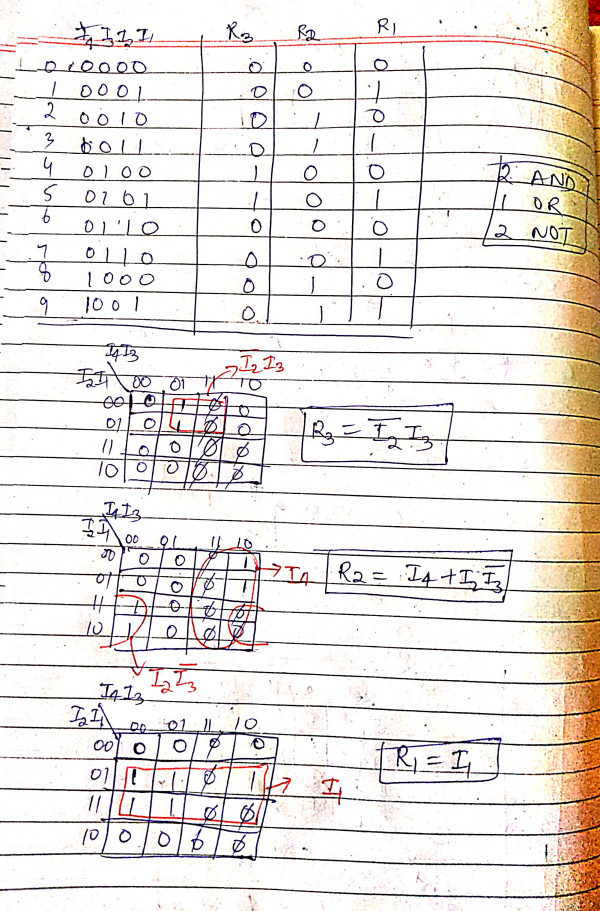 I₄I₃I₂I₁ R₃ R₂ R₁
0 0000 0 0 0
1 0001 0 0 1
2 0010 0 1 0
3 0011 0 1 1
4 0100 1 0 0
5 0101 1 0 1
6 0110 0 0 0
7 0110 0 0 1
8 1000 0 1 0
9 1001 0 1 1
2 AND
1 OR
2 NOT
I₄I₃
I̅₂I₃
I₂I₁ 00 01 11 10
00 0 1 ∅ 0
01 0 1 ∅ 0
11 0 0 ∅ ∅
10 0 0 ∅ ∅
R₃ = I̅₂ I₃
I₄I₃
I₂I₁ 00 01 11 10
00 0 0 ∅ 1
01 0 0 ∅ 1
11 1 0 ∅ ∅
10 1 0 ∅ ∅
I₄
R2 = I₄ + I₂ I̅₃
I₂ I̅₃
I₄I₃
I₂I₁ 00 01 11 10
00 0 0 ∅ 0
01 1 1 ∅ 1
11 1 1 ∅ ∅
10 0 0 ∅ ∅
I₁
R₁ = I₁